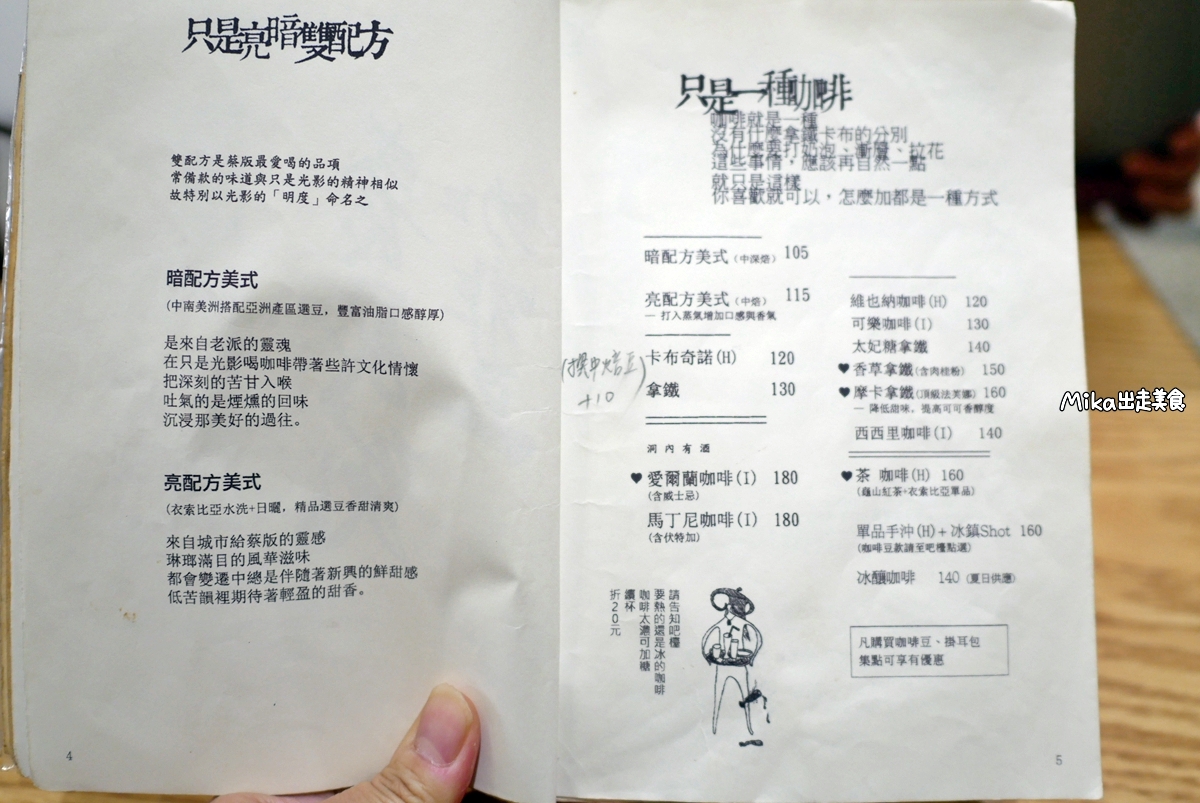 只是亮暗雙配方
雙配方是蔡版最愛喝的品項
常備款的味道與只是光影的精神相似
故特別以光影的「明度」命名之
暗配方美式
(中南美洲搭配亞洲產區選豆，豐富油脂口感醇厚)
是來自老派的靈魂
在只是光影喝咖啡帶著些許文化情懷
把深刻的苦甘入喉
吐氣的是煙燻的回味
沉浸那美好的過往。
亮配方美式
(衣索比亞水洗+日曬，精品選豆香甜清爽)
來自城市給蔡版的靈感
琳瑯滿目的風華滋味
都會變遷中總是伴隨著新興的鮮甜感
低苦韻裡期待著輕盈的甜香。
4
只是一種咖啡
咖啡就是一種
沒有什麼拿鐵卡布的分別
為什麼要打奶泡、漸層、拉花
這些事情，應該再自然一點
就只是這樣
你喜歡就可以，怎麼加都是一種方式
暗配方美式(中深焙) 105
亮配方美式(中焙) 115
— 打入蒸氣增加口感與香氣
卡布奇諾(H) 120
拿鐵 130
(換中焙豆)
+10
洞內有酒
♥愛爾蘭咖啡(I) 180
(含威士忌)
馬丁尼咖啡(I) 180
(含伏特加)
請告知吧檯
要熱的還是冰的咖啡
咖啡太濃可加糖
續杯
折20元
維也納咖啡(H) 120
可樂咖啡(I) 130
太妃糖拿鐵 140
♥香草拿鐵(含肉桂粉) 150
♥摩卡拿鐵(頂級法芙娜) 160
— 降低甜味，提高可可香醇度
西西里咖啡(I) 140
♥茶 咖啡(H) 160
(龜山紅茶+衣索比亞單品)
單品手沖(H)+冰鎮Shot 160
(咖啡豆款請至吧檯點選)
冰釀咖啡 140(夏日供應)
凡購買咖啡豆、掛耳包
集點可享有優惠
5
Mika出走美食